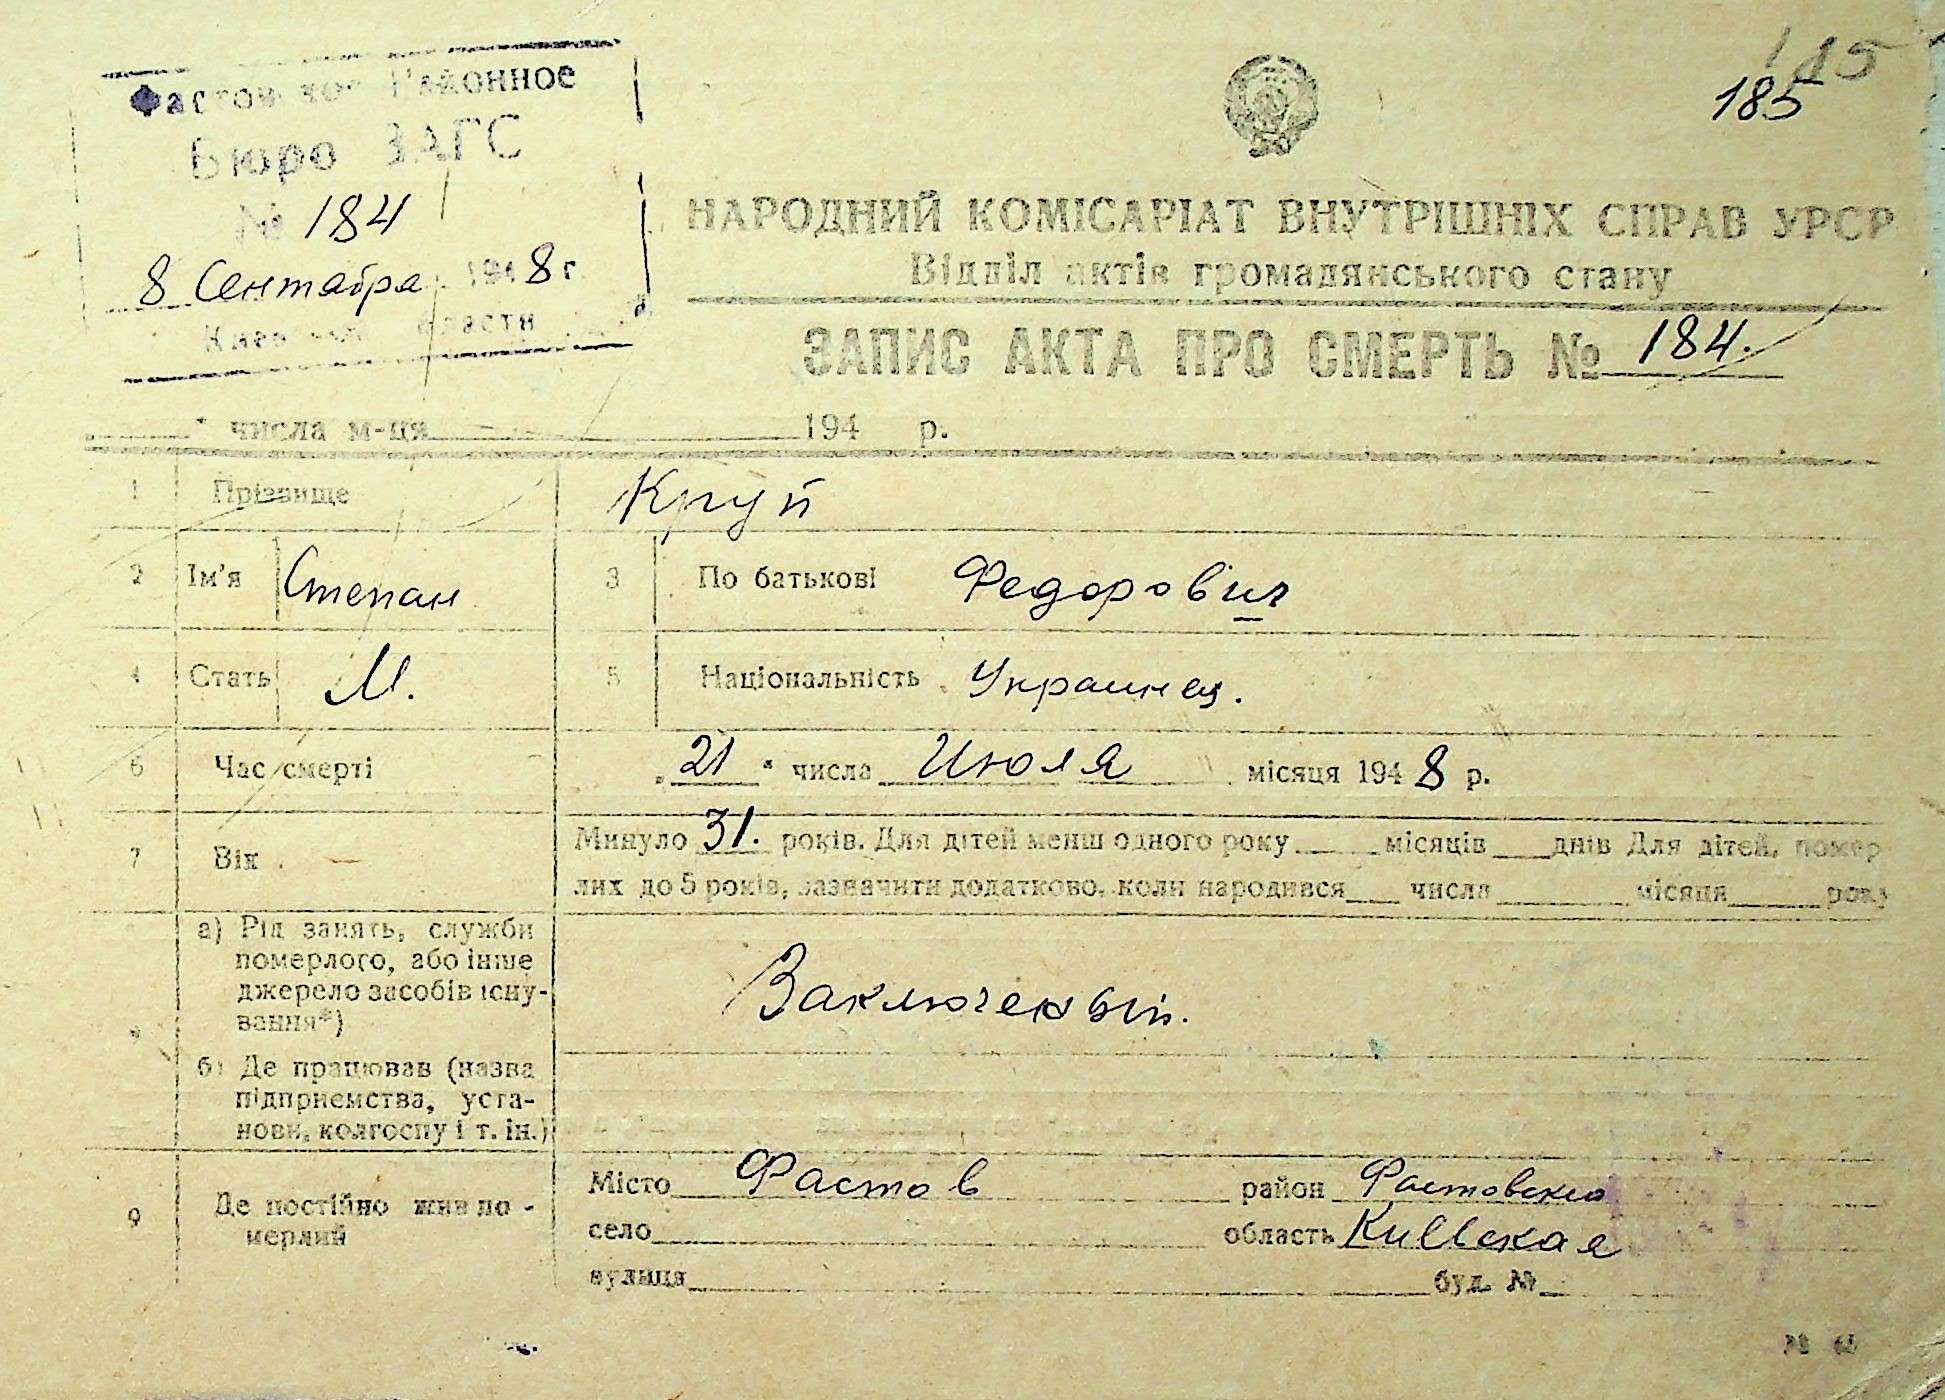 Фастовское Районное
Бюро ЗАГС
№ 184
8 Сентября 1948 г
Киевской области
185
185
НАРОДНИЙ КОМІСАРІАТ ВНУТРІШНІХ СПРАВ УРСР
Відділ актів громадянського стану
ЗАПИС АКТА ПРО СМЕРТЬ № 184.
" числа м-ця 194 р.
1 Прізвище Круп
2 Ім'я Степан 3 По батькові Федорович
4 Стать М. 5 Національність Украинец.
6 Час смерті „21" числа Июля місяця 1948 р.
7 Вік Минуло 31. років. Для дітей менш одного року місяців днів Для дітей, помер-
лих до 5 років, зазначити додатково, коли народився числа місяця року
а) Рід занять, служби
померлого, або інше
джерело засобів існу-
вання*) Заключеный.
б) Де працював (назва
підприємства, уста-
нови, колгоспу і т. ін.)
9 Де постійно жив по-
мерлий
Місто Фастов район Фастовский
село область Киевская
вулиця буд. №